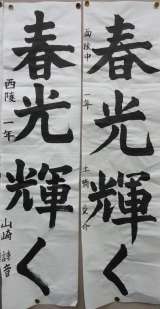 春光輝く
西陵中 一年
春光輝く
西陵 一年
山崎 詩音